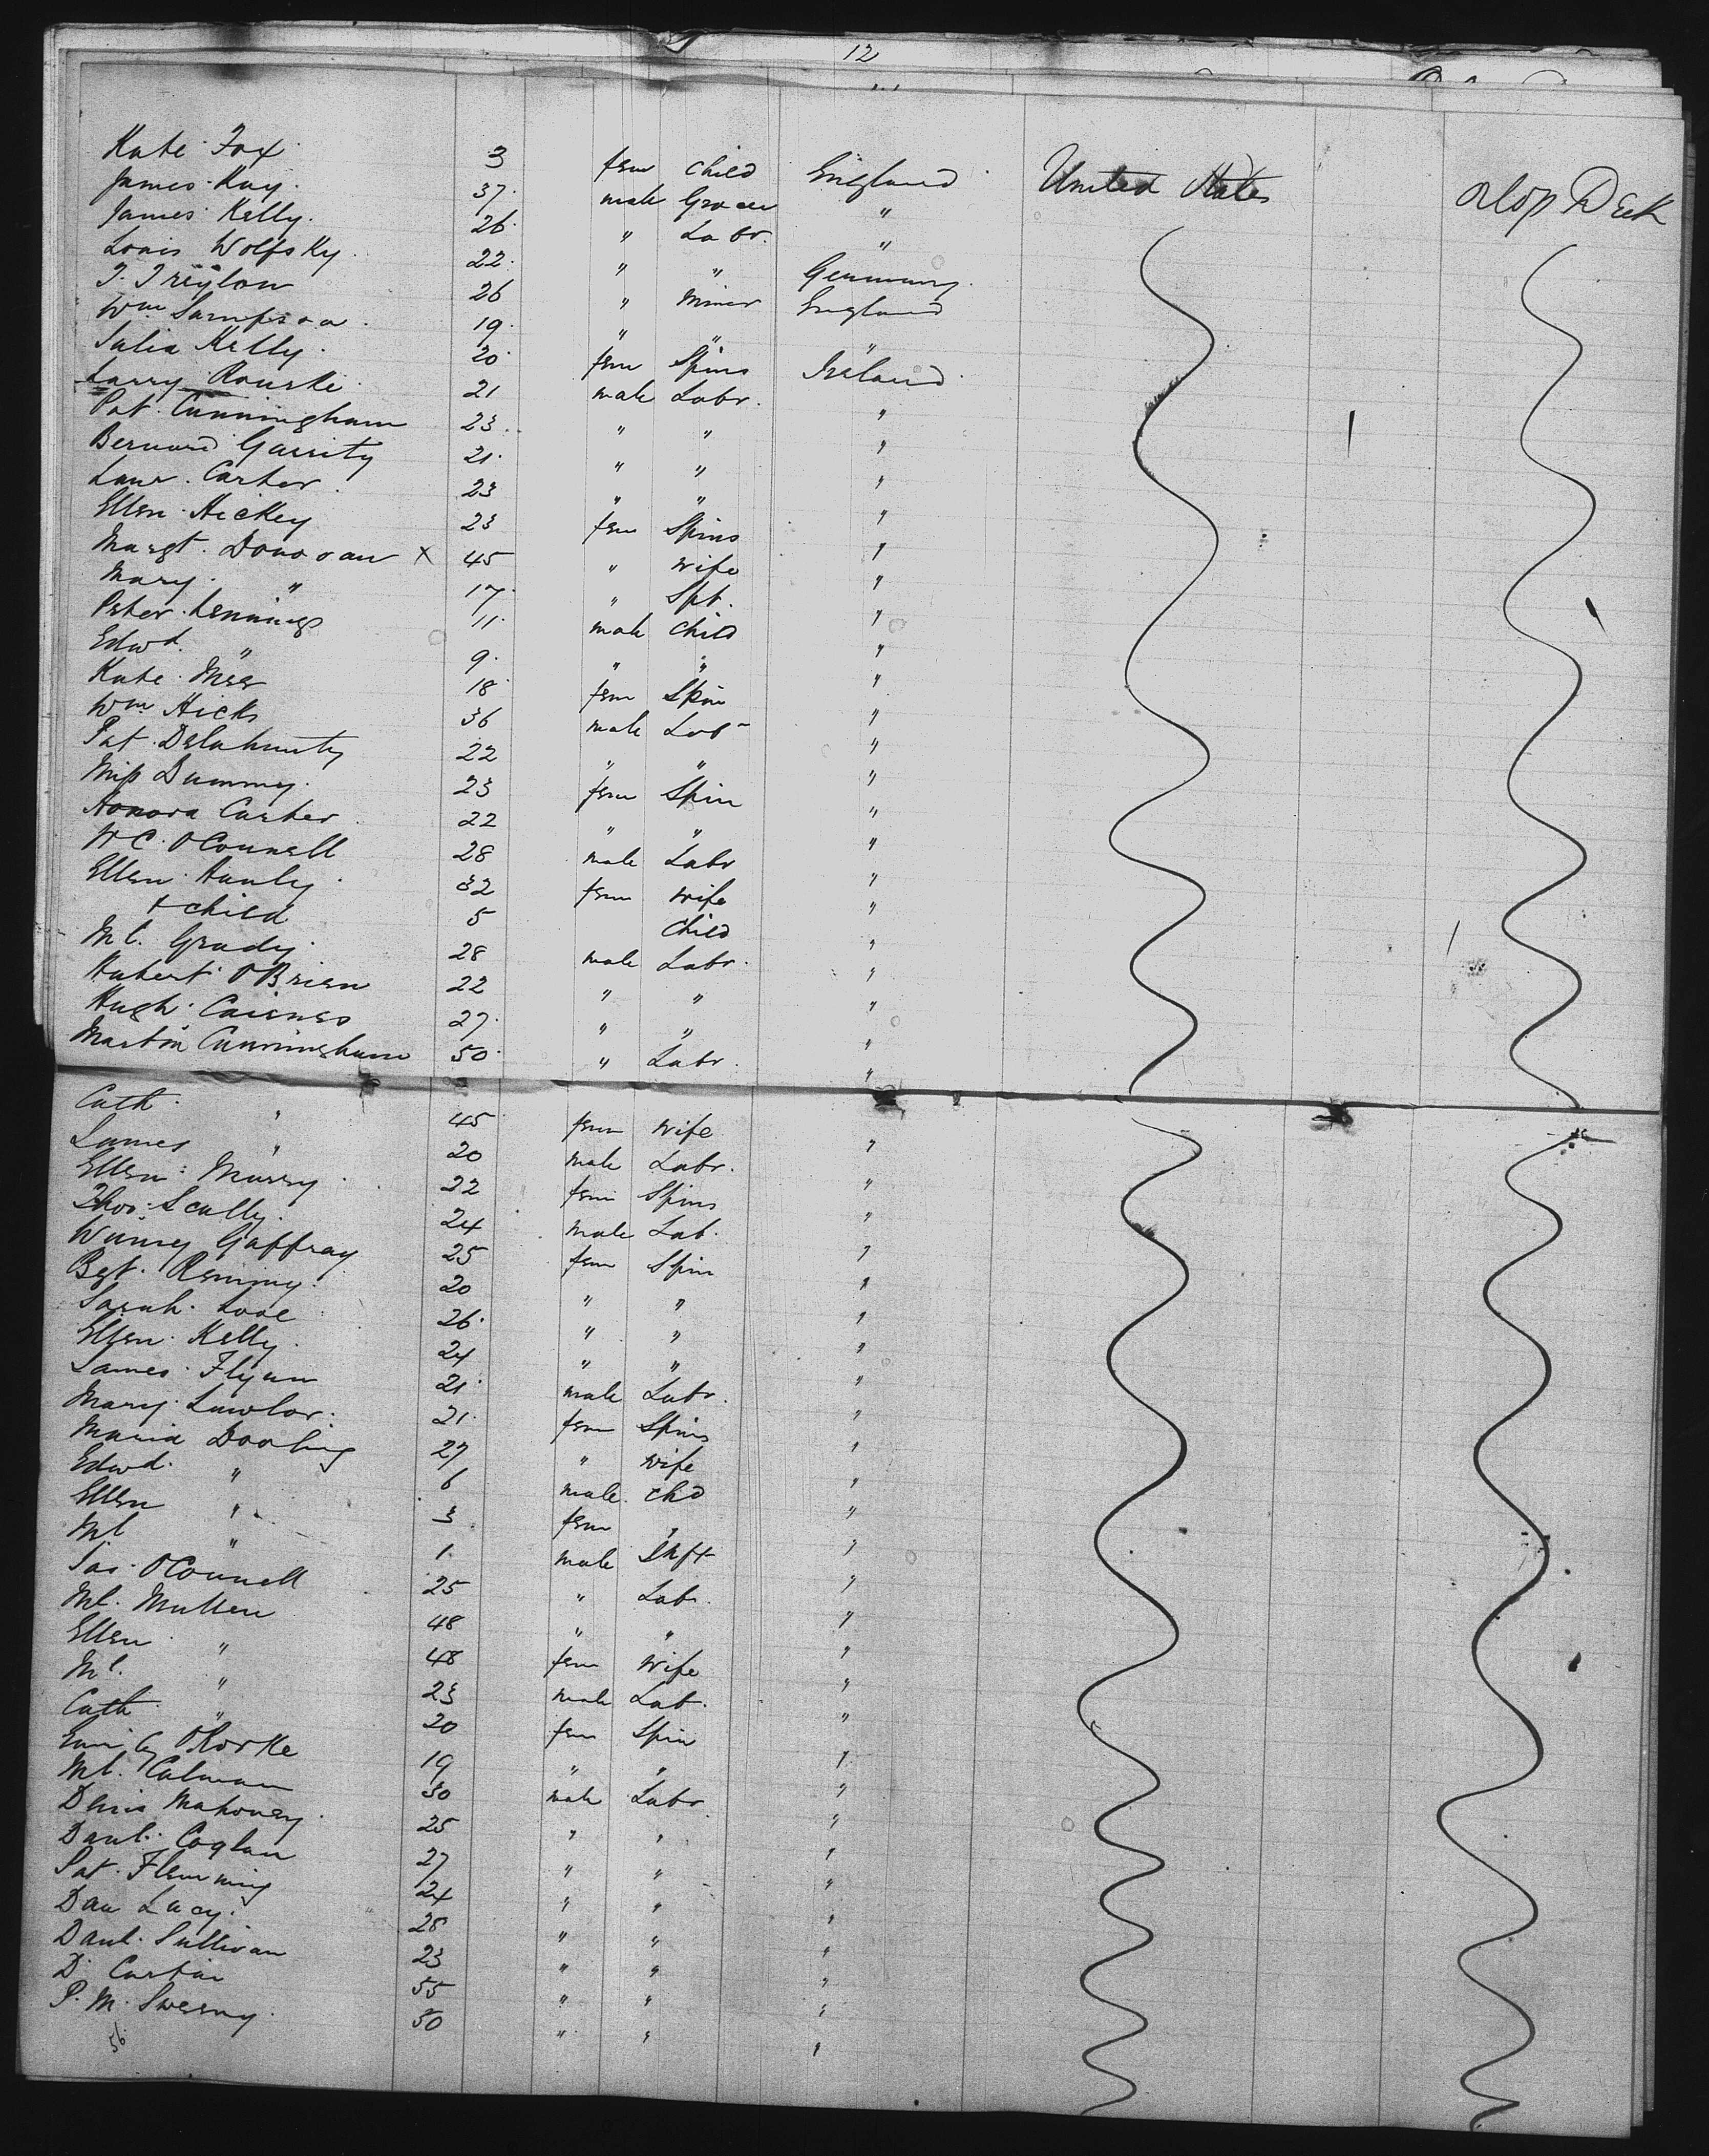 12
Kate Fox 3 fem child England United States Orlop Deck
James Kay 37 male Grocer "
James Kelly 26 " Labr. "
Louis Wolfsky 22 " " Germany
T. Treglow 26 " Miner England
Wm Sampson 19 " " "
Julia Kelly 20 fem Spins Ireland
Larry Rourke 21 male Labr. "
Pat Cunningham 23 " " "
Bernard Garrity 21 " " "
Laur. Carter 23 " " "
Ellen Hickey 23 fem Spins "
Margt. Donovan x 45 " wife "
Mary " 17 " Spt. "
Peter Lennings 11 male child "
Edwd. " 9 " " "
Kate 18 fem Spin "
Wm Hicks 36 male Lab "
Pat Delahunty 22 " " "
Miss Dummy 23 fem Spin "
Honora Carter 22 " " "
W C OConnell 28 male Labr "
Ellen Hanly 32 fem wife "
+ child 5 child "
Ml. Grady 28 male Labr. "
Hubert OBrien 22 " " "
Hugh Cairnes 27 " " "
Martin Cunningham 50 " Labr. "
Cath " 45 fem wife "
James " 20 male Labr. "
Ellen Murry 22 fem Spins "
Thos Scully 24 male Lab. "
Winny Gaffray 25 fem Spin "
Bgt. Remmy 20 " " "
Sarah Love 26 " " "
Ellen Kelly 24 " " "
James Flynn 21 male Labr. "
Mary Lawlor 21 fem Spins "
Maria Dooling 27 " wife "
Edwd. " 6 male chd "
Ellen " 3 fem " "
Ml " 1 male Inft "
Jas OConnell 25 " Lab. "
Ml. Mullen 48 " " "
Ellen " 48 fem wife "
Ml. " 23 male Lab. "
Cath " 20 fem Spin "
Emily ORorke 19 " " "
Ml. Calman 30 male Labr "
Denis Mahoney 25 " " "
Danl. Coglan 27 " " "
Pat. Flemming 24 " " "
Dan Lacy 28 " " "
Danl. Sullivan 23 " " "
D. Curtin 55 " " "
P. M. Sweeny 50 " " "
56